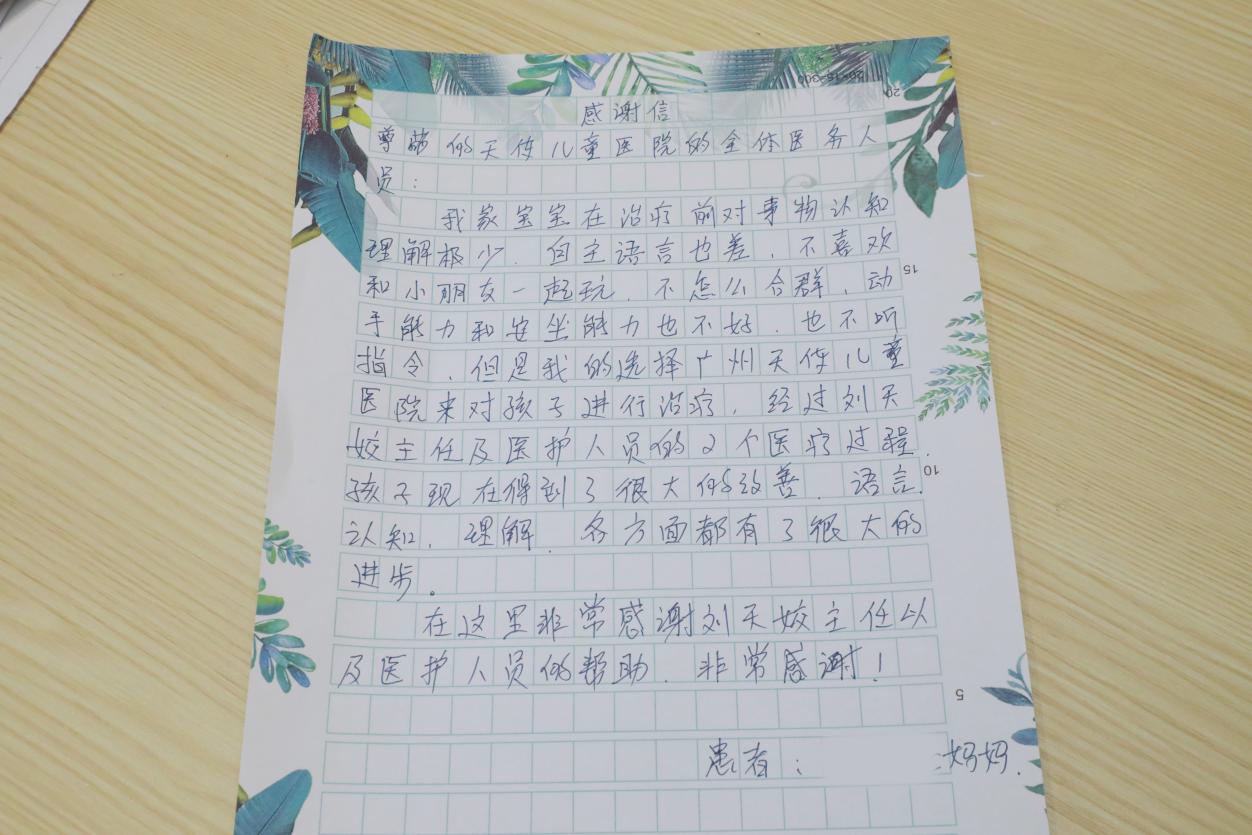 感谢信
尊敬的天使儿童医院的全体医务人
员：
我家宝宝在治疗前对事物认知
理解极少．自主语言也差．不喜欢
和小朋友一起玩．不怎么合群．动
手能力和安坐能力也不好．也不听
指令．但是我的选择广州天使儿童
医院来对孩子进行治疗．经过刘天
姣主任及医护人员的2个医疗过程．
孩子现在得到了很大的改善．语言．
认知．理解．各方面都有了很大的
进步。
在这里非常感谢刘天姣主任以
及医护人员的帮助．非常感谢！
患者：妈妈．
20×15=300
20
15
10
5